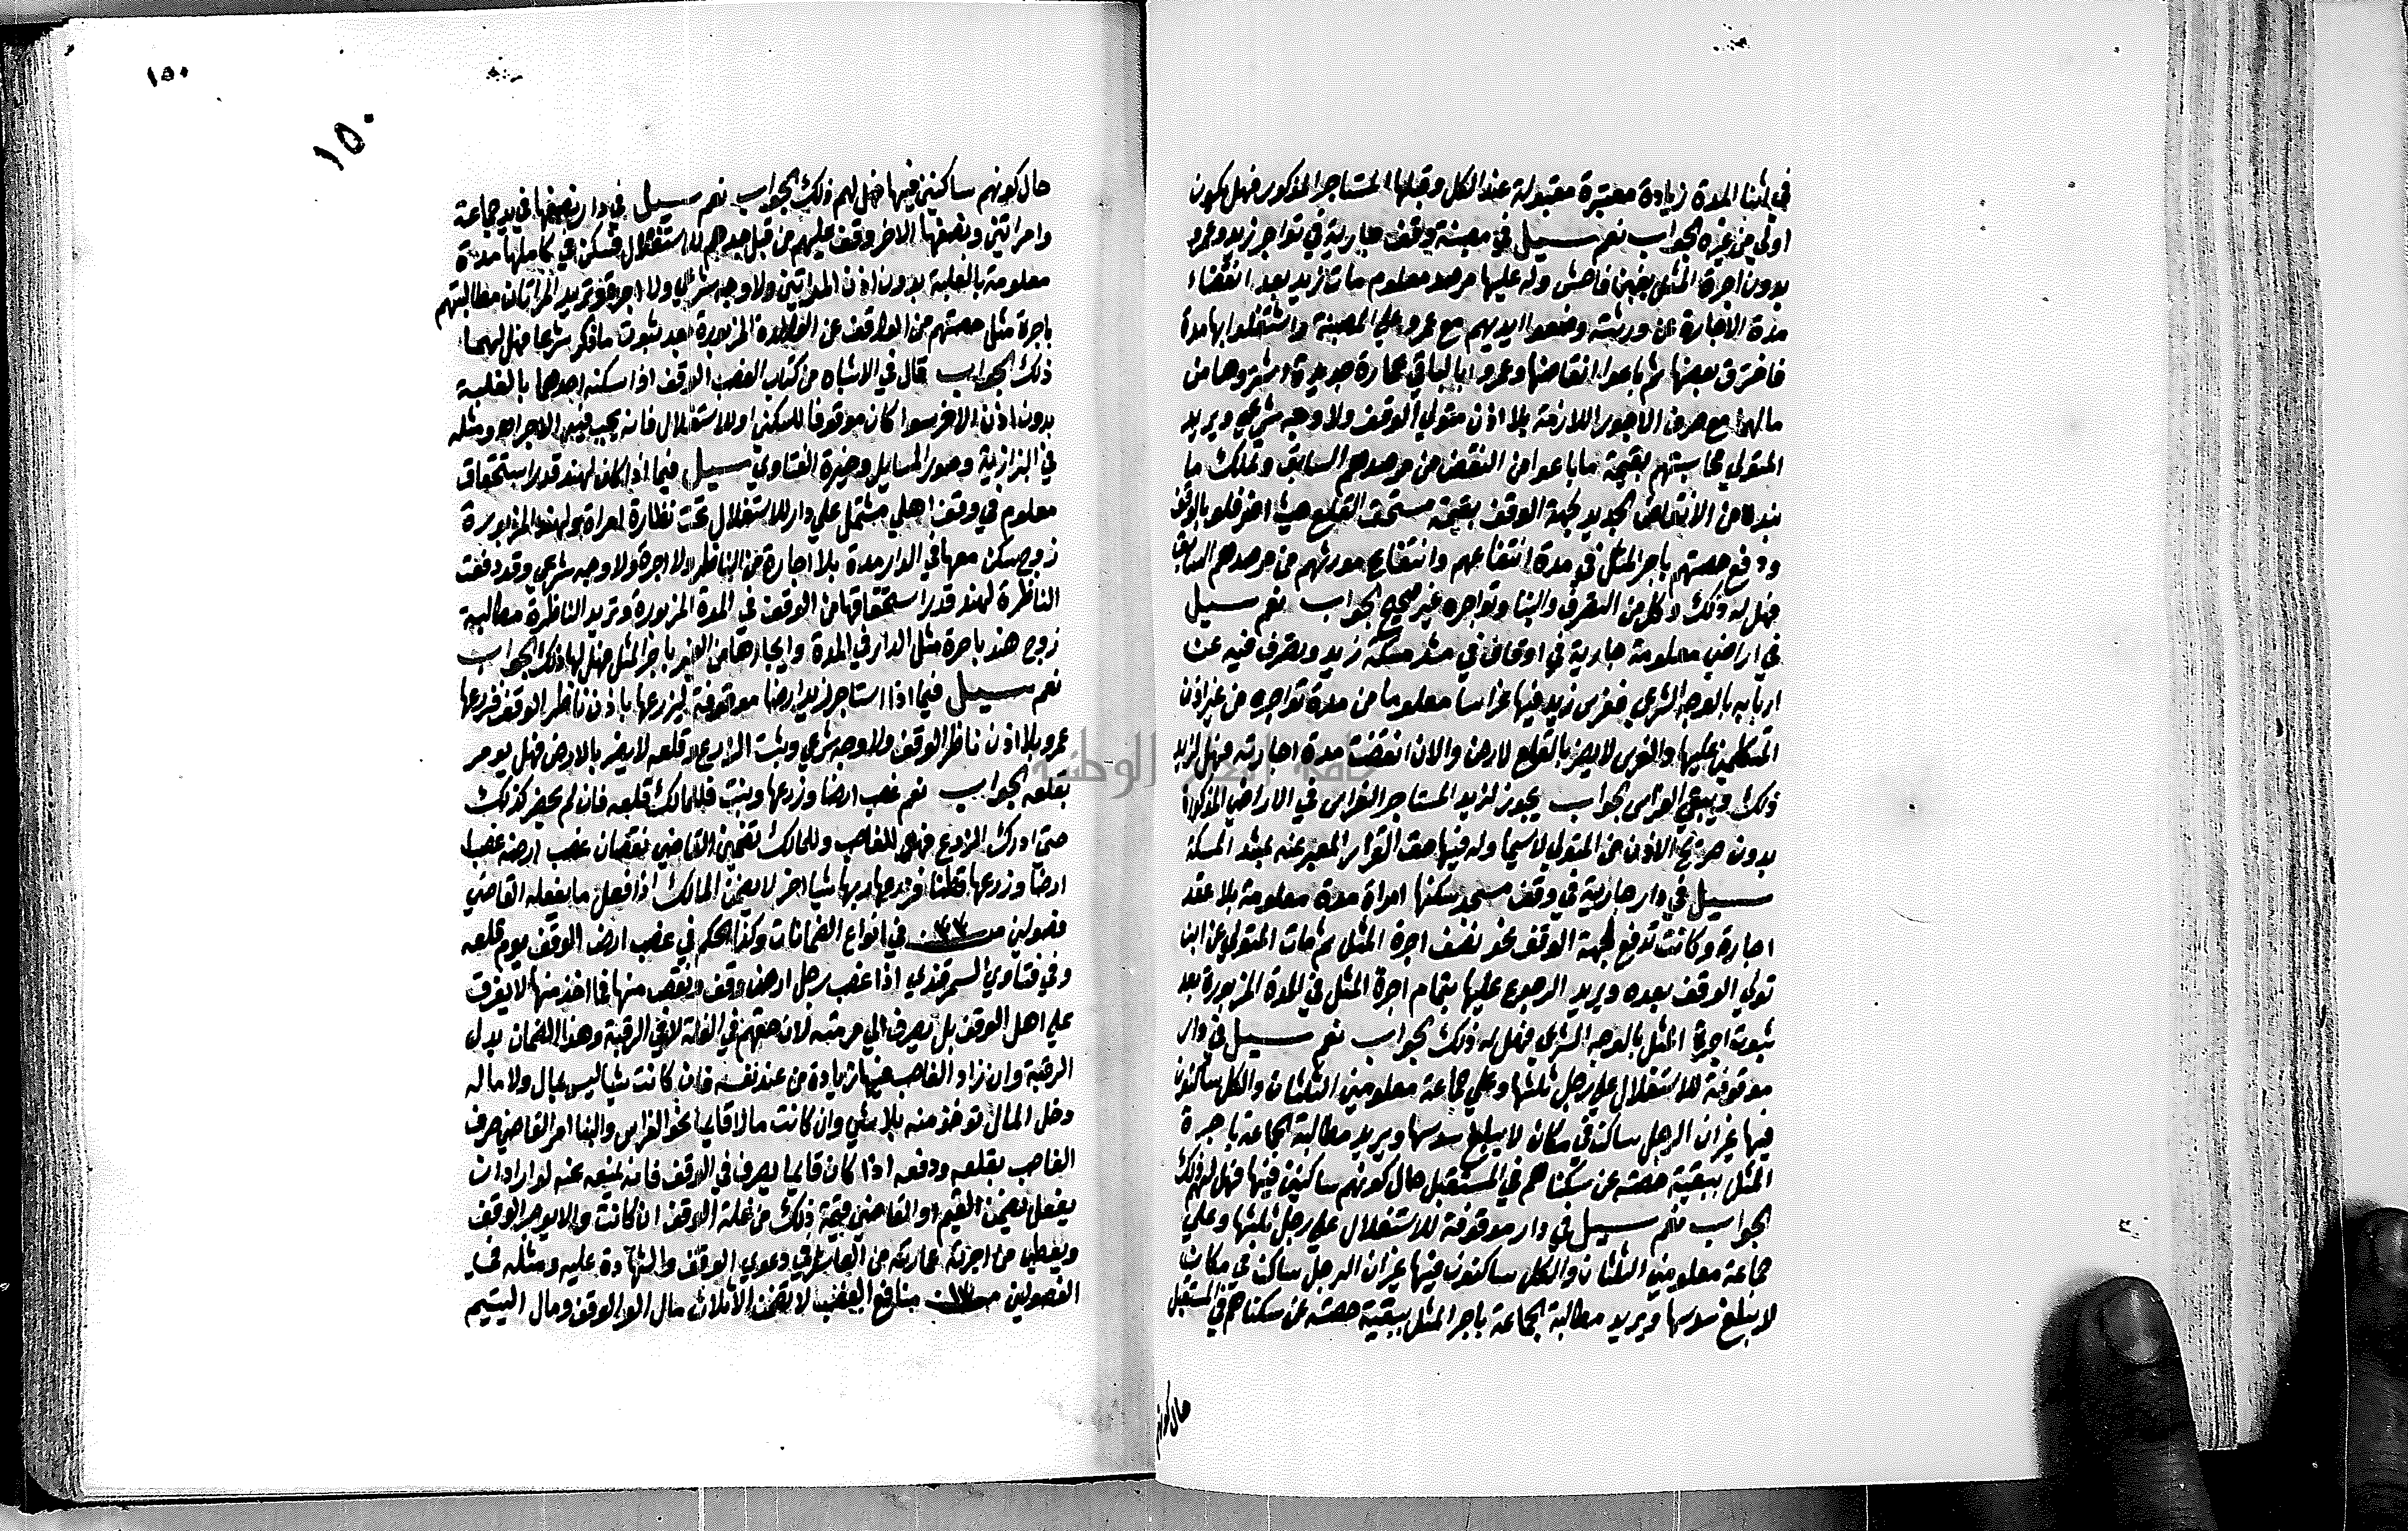 في اثنا المدة زيادة معتبرة مقبولة عند الكل وقبلها المستاجر المذكور فهل يكون
اولي من غيره الجواب نعم سيل في مصبنة وقف جارية في تواجر زيد وعمرو
بدون اجرة المثل بغبن فاحش وله عليها مرصد معلوم مات زيد بعد انقضاء
مدة الاجارة عن ورثته وضعوا ايديهم مع عمرو علي المصبنة واشتغلوا بها مدة
فاحترق بعضها ثم باعوا انقاضها وعمروا بالباقي عمارة جديدة اشتروها من
مالهم مع صرف الاجور اللازمة بلا اذن متولي الوقف ولا وجه شرعي ويريد
المتولي محاسبتهم بقيمة ما باعوا من النقض من مرصدهم السابق وتملك ما
بنوه من الانقاض الجديد لجهة الوقف بقيمته مستحق القلع حيث اضر قلعه بالوقف
ودفع حصتهم باجر المثل في مدة انتفاعهم وانتفاع مورثهم من مرصدهم السابق
فهل له ذلك لا كل من التصرف والبنا وتواجره غير صحيح الجواب نعم سيل
في اراضي معلومة جارية في اوقاف في مشد مسكة زيد ويتصرف فيه عن
اربابه بالوجه الشرعي فغرس زيد فيها غراسا معلوما من مدة تواجره من غير اذن
المتكلمين عليها والغرس لا يضر بالقلع لارض والان انقضت مدة اجارته فهل لزيد
ذلك ويبقي الغراس الجواب يجوز لزيد المستاجر الغراس في الاراضي المذكورة
بدون صريح الاذن من المتولي لاسيما وله فيها حق القرار المعبر عنه بمشد المسكة
سيل في دار جارية في وقف مسجد سكنها امراة مدة معلومة بلا عقد
اجارة وكانت تدفع لجهة الوقف نحو نصف اجرة المثل ثم مات المتولي عن ابن
تولي الوقف بعده ويريد الرجوع عليها بتمام اجرة المثل في المدة المزبورة بعد
ثبوت اجرة المثل بالوجه الشرعي فهل له ذلك الجواب نعم سيل في دار
موقوفة للاستغلال علي رجل ثلثها وعلي جماعة معلومين الثلثان والكل ساكنون
فيها غير ان الرجل ساكن في مكان لا يبلغ سدسها ويريد مطالبة الجماعة باجرة
المثل ببقية حصته عن سكناهم في المستقبل حال كونهم ساكنين فيها فهل لهم ذلك
الجواب نعم سيل في دار موقوفة للاستغلال علي رجل ثلثها وعلي
جماعة معلومين الثلثان والكل ساكنون فيها غير ان الرجل ساكن في مكان
لا يبلغ سدسها ويريد مطالبة الجماعة باجر المثل ببقية حصته عن سكناهم في المستقبل
حال كونهم
١٥٠
١٥٠
حال كونهم ساكنين فيها فهل لهم ذلك الجواب نعم سيل في دار نصفها في يد جماعة
وامراتين ونصفها الاخر وقف عليهم من قبل جدهم للاستغلال فسكن في كاملها مدة
معلومة بالغلبة بدون اذن المراتين ولا وجه شرعي ولا اجرة وتريد المراتان مطالبتهم
باجرة مثل حصتهم من الوقف عن المدة المزبورة بعد ثبوت ما ذكر شرعا فهل لهما
ذلك الجواب قال في الاشباه من كتاب الغصب الوقف اذا سكنه احدهما بالغلبة
بدون اذن الاخر سوا كان موقوفا للسكني او للاستغلال فانه يجب فيه الاجر اه ومثله
في البزازية وصور المسايل وخيرة الفتاوي سيل فيما اذا كان لهند قدر استحقاق
معلوم في وقف اهلي مشتمل علي دار للاستغلال تحت نظارة امراة ولهند المزبورة
زوج سكن معها في الدار مدة بلا اجارة من الناظر ولا اجرة ولا وجه شرعي وقد دفعت
الناظرة لهند قدر استحقاقها من الوقف في المدة المزبورة وتريد الناظرة مطالبة
زوج هند باجرة مثل الدار في المدة وايجارها من الغير باجر المثل فهل لها ذلك الجواب
نعم سيل فيما اذا استاجر زيد ارضا موقوفة ليزرعها باذن ناظر الوقف فزرعها
عمرو بلا اذن ناظر الوقف ولا وجه شرعي ونبت الزرع وقلعه لا يضر بالارض فهل يومر
بقلعه الجواب نعم غصب ارضا وزرعها ونبت فللمالك قلعه فان لم يحضر كذلك
حتي ادرك الزرع فهو للغاصب وللمالك تضمين القاضي نقصان غصب ارضه غصب
ارضا وزرعها قطنا فزرعها ربها شيا اخر لا يضمن المالك اذا فعل ما يفعله القاضي
فصولين من ٣٣ في انواع الضمانات وكذا الحكم في غصب ارض الوقف يوم قلعه
وفي فتاوي السمرقندي اذا غصب رجل ارض وقف ونقص منها فما اخذ منها لا يفرق
علي اهل الوقف بل يصرف الي مرمته لان حقهم في الغلة لا في الرقبة وهذا الضمان بدل
الرقبة وان زاد الغاصب فيها زيادة من عند نفسه فان كانت شيا ليس بمال ولا ماله
دخل المال توخذ منه بلا شي وان كانت مالا قايما نحو الغراس والبنا امر القاضي صرف
الغاصب بقلعه ودفعه اذا كان قايما يصرف في الوقف فانه يمنعه عنه لو اراد ان
يفعل يضمن القيم او القاضي قيمة ذلك من غلة الوقف ان كانت والا يوجر الوقف
ويعطي من اجرته عمارته من العاشر في دعوي الوقف والشهادة عليه ومثله في
الفصولين من ١٣ منافع الغصب لا تضمن الا ثلاث مال الوقف ومال اليتيم